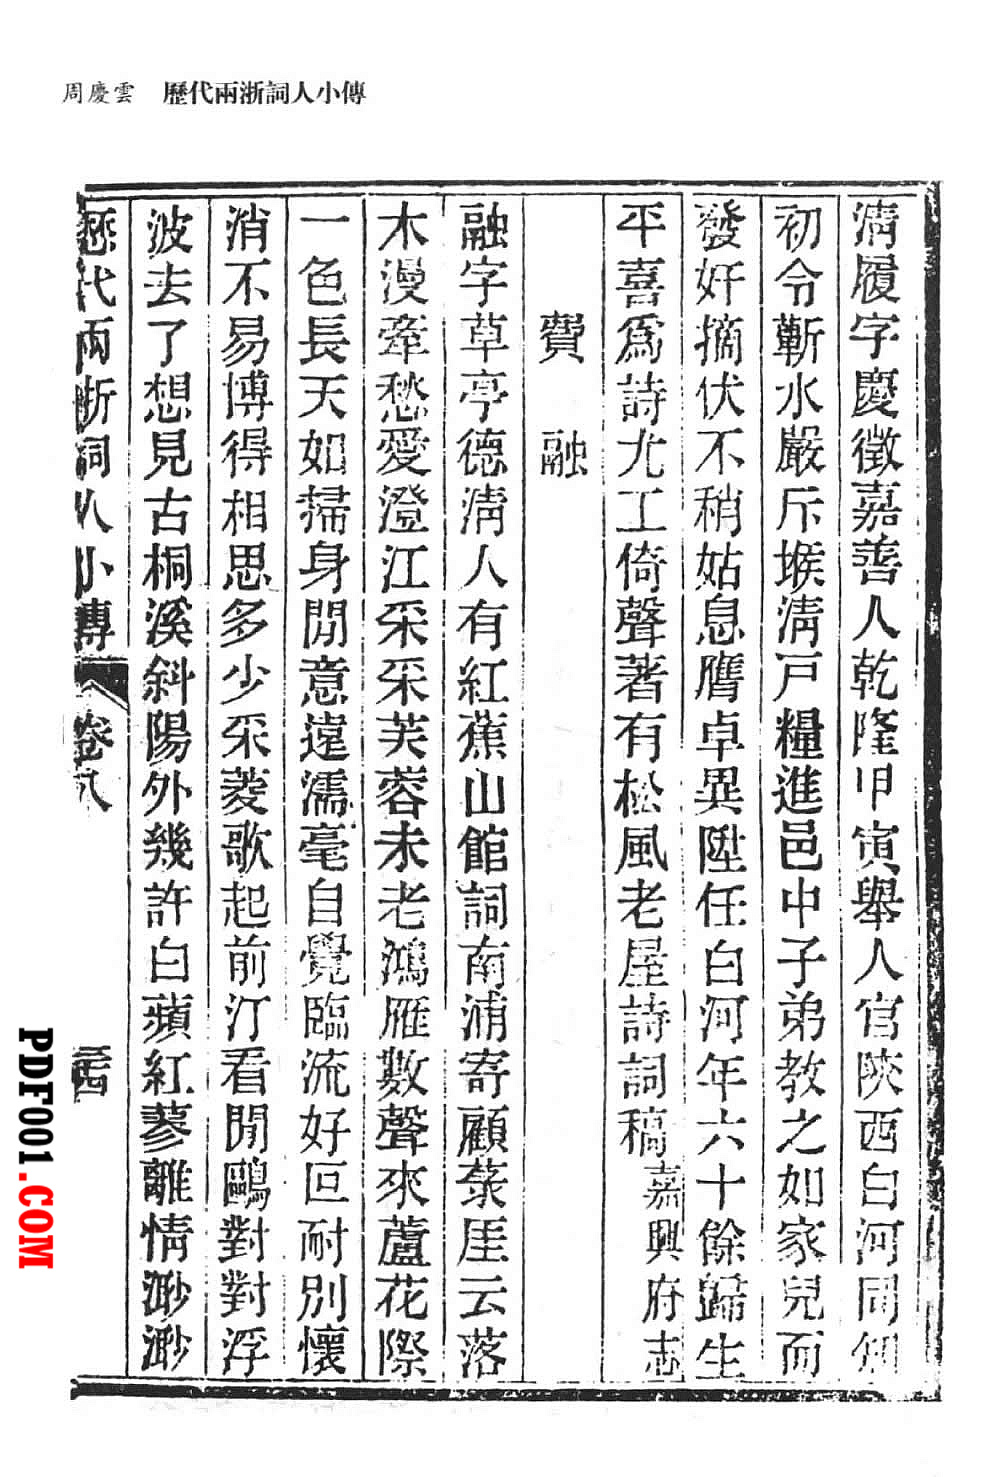 周慶雲 歷代兩浙詞人小傳
淸履字慶徵嘉善人乾隆甲寅舉人官陝西白河同知
初令蘄水嚴斥堠淸戸糧進邑中子弟教之如家兒而
發奸摘伏不稍姑息膺卓異陞任白河年六十餘歸生
平喜爲詩尤工倚聲著有松風老屋詩詞稿嘉興府志
費融
融字草亭德淸人有紅蕉山館詞南浦寄顧蔡厓云落
木漫牽愁愛澄江采采芙蓉未老鴻雁數聲來蘆花際
一色長天如掃身閒意遠濡毫自覺臨流好叵耐別懷
消不易博得相思多少采菱歌起前汀看閒鷗對對浮
波去了想見古桐溪斜陽外幾許白蘋紅蓼離情渺渺
歷代兩浙詞人小傳 卷八 三四
PDF001.COM